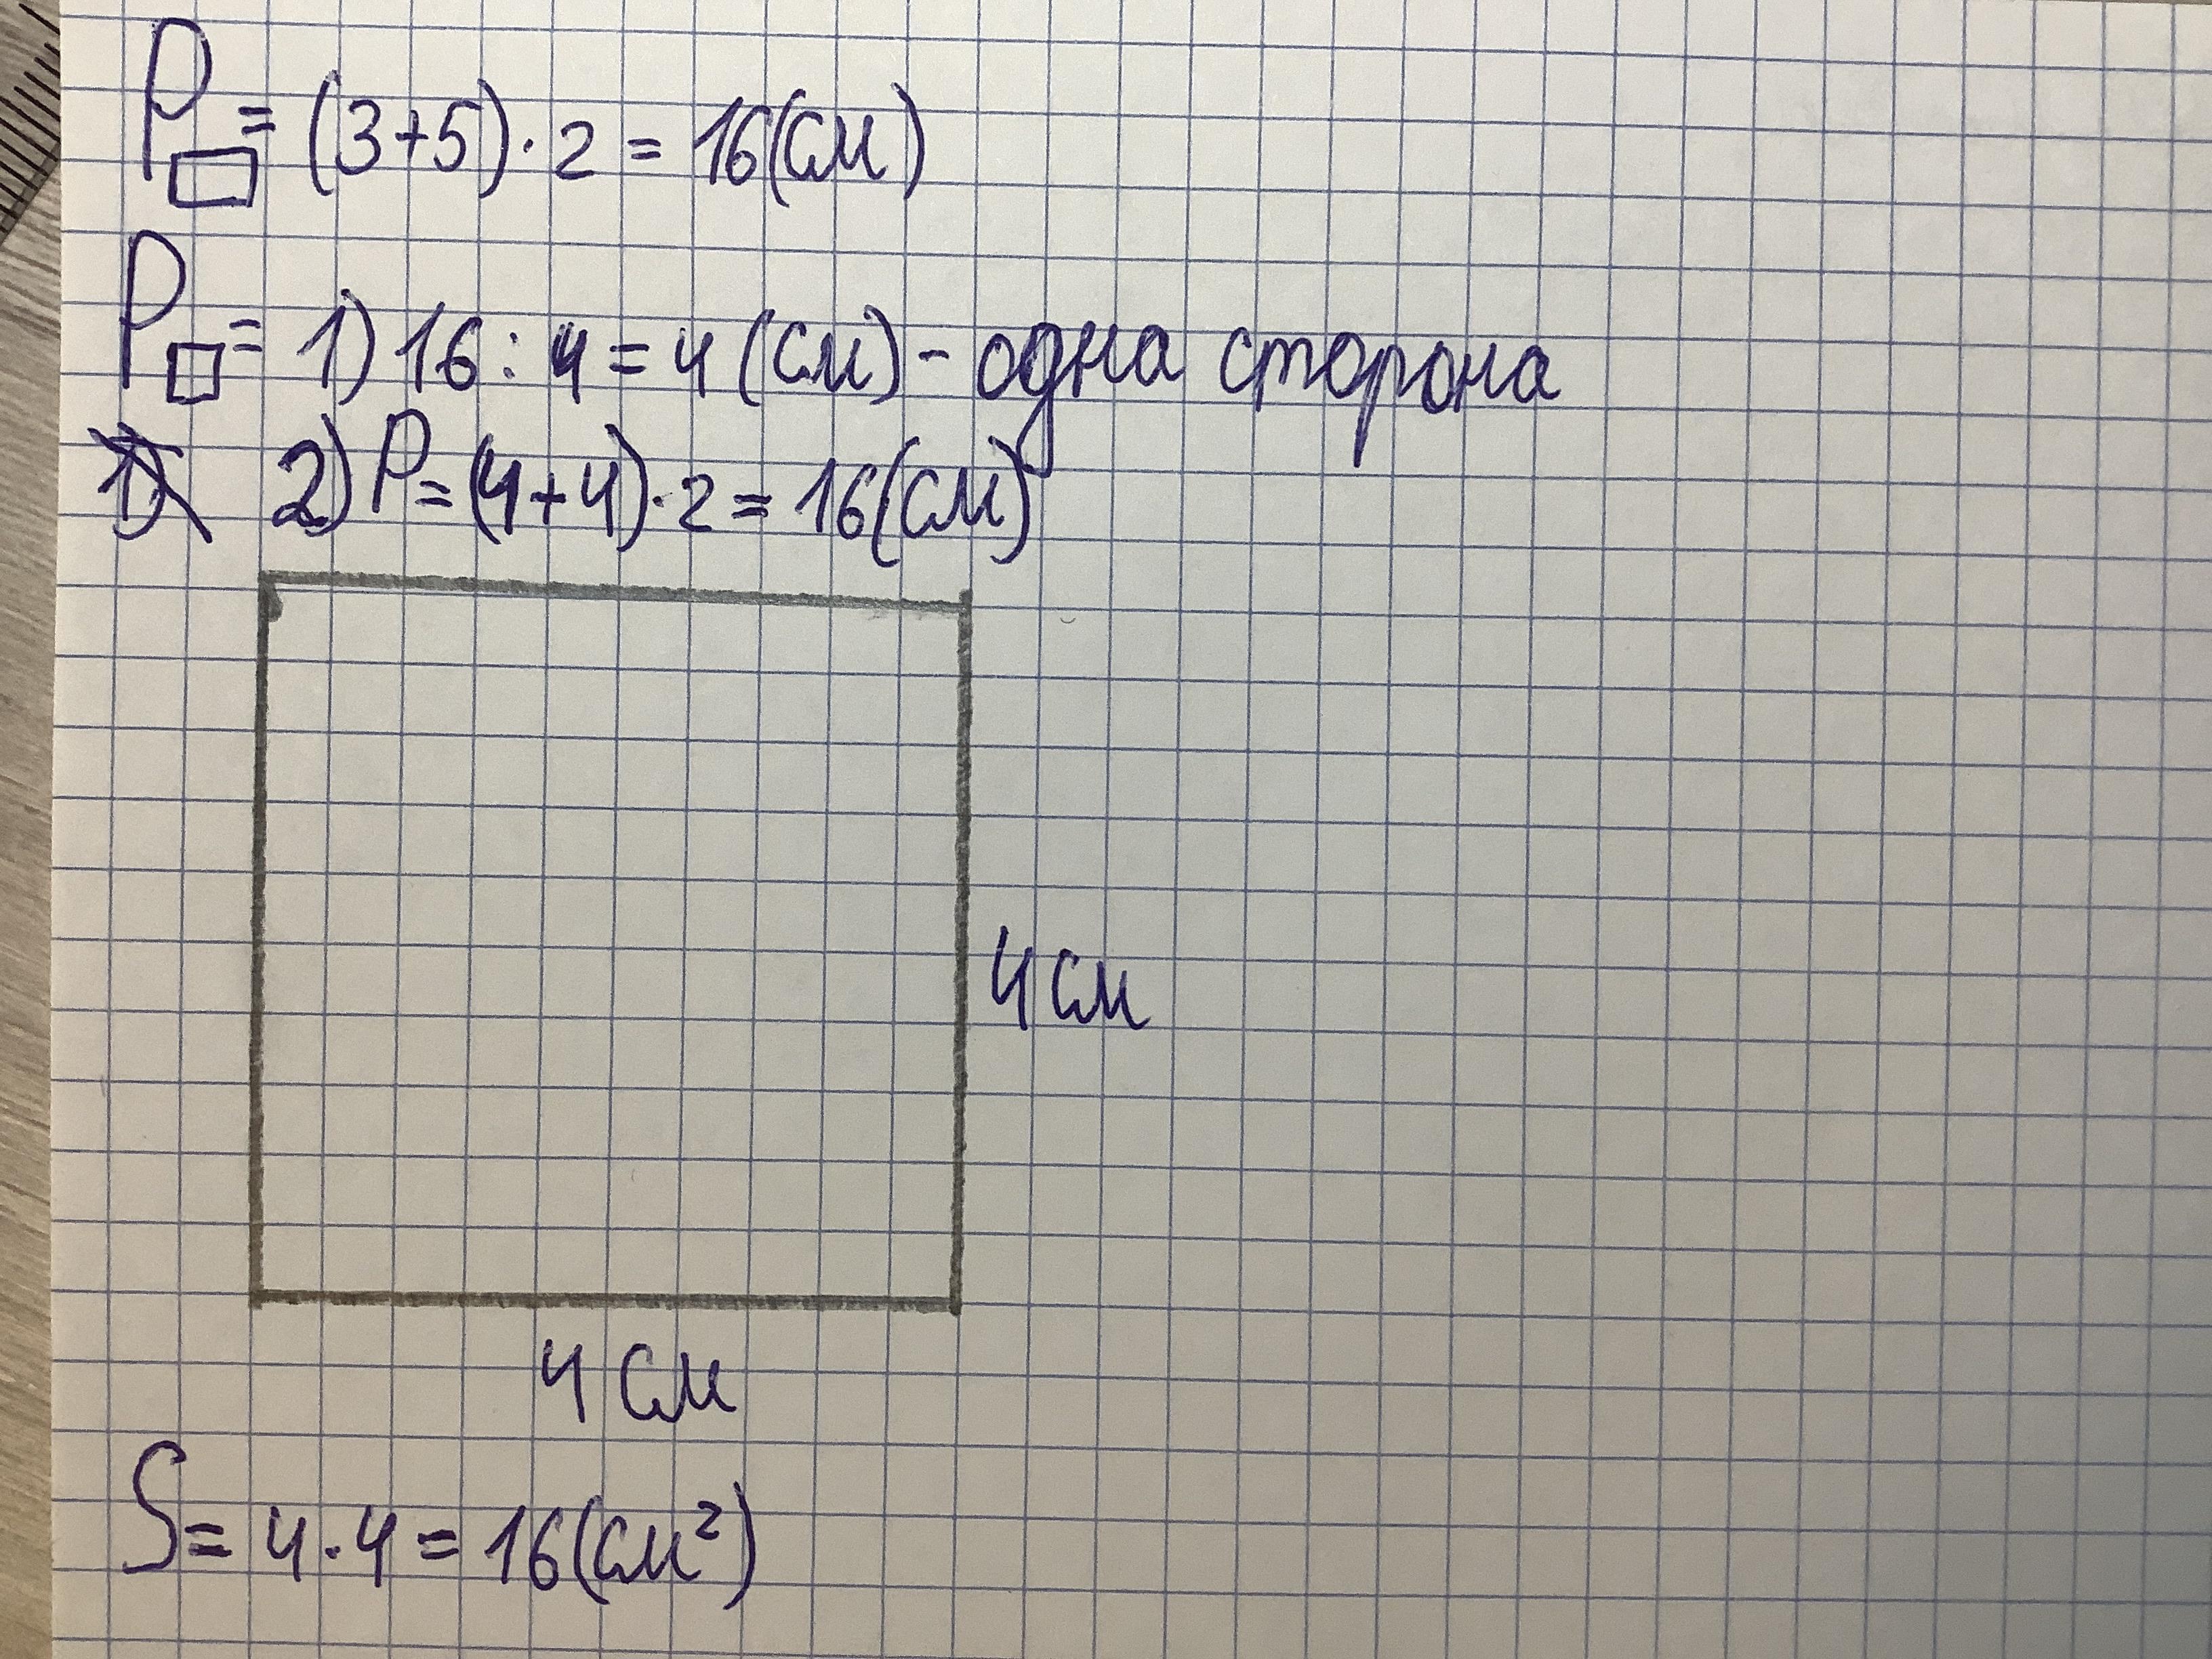 P▭ = (3+5)·2 = 16(см)
P□ = 1) 16 : 4 = 4 (см) - одна сторона
2) P = (4+4)·2 = 16(см)
4 см
4 см
S = 4·4 = 16(см²)